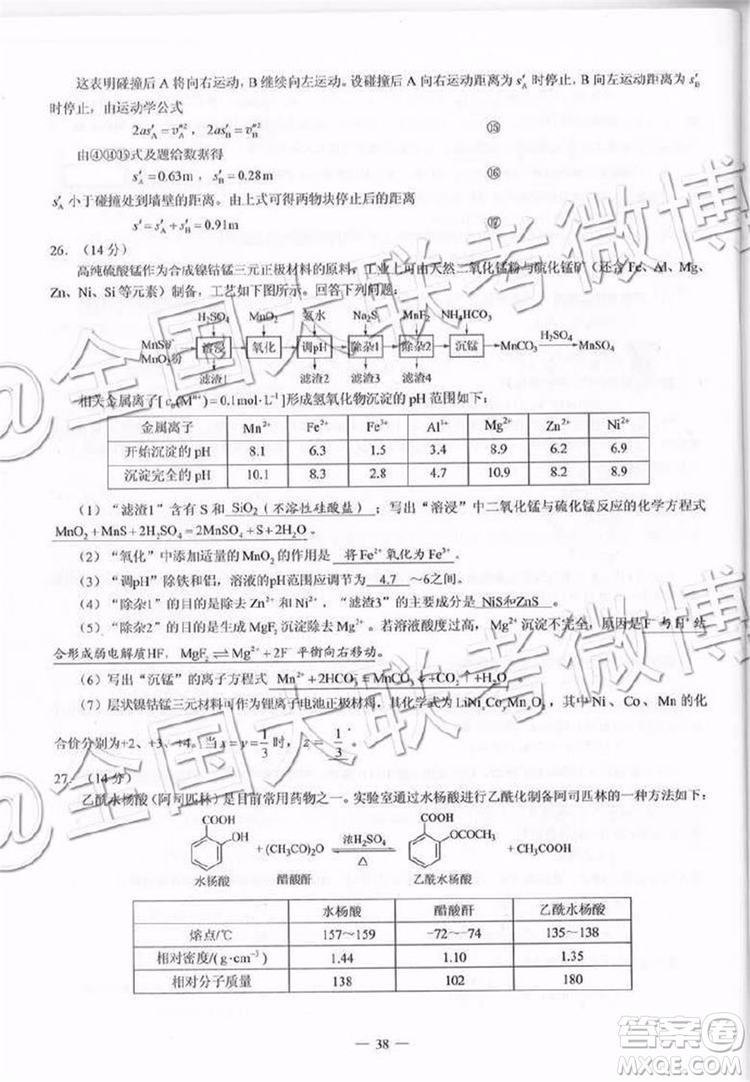 这表明碰撞后 A 将向右运动，B 继续向左运动。设碰撞后 A 向右运动距离为 s′A 时停止，B 向左运动距离为 s′B
时停止，由运动学公式
2as′A = v″A²，2as′B = v″B² ⑮
由④⑭⑮式及题给数据得
s′A = 0.63m，s′B = 0.28m ⑯
s′A 小于碰撞处到墙壁的距离。由上式可得两物块停止后的距离
s′ = s′A + s′B = 0.91m ⑰
26．（14 分）
高纯硫酸锰作为合成镍钴锰三元正极材料的原料，工业上可由天然二氧化锰粉与硫化锰矿（还含 Fe、Al、Mg、
Zn、Ni、Si 等元素）制备，工艺如下图所示。回答下列问题：
H₂SO₄ MnO₂ 氨水 Na₂S MnF₂ NH₄HCO₃
MnS矿 MnO₂粉 → 溶浸 → 氧化 → 调pH → 除杂1 → 除杂2 → 沉锰 → MnCO₃ H₂SO₄→ MnSO₄
滤渣1 滤渣2 滤渣3 滤渣4
相关金属离子[c₀(Mⁿ⁺) = 0.1mol·L⁻¹]形成氢氧化物沉淀的 pH 范围如下：
金属离子 Mn²⁺ Fe²⁺ Fe³⁺ Al³⁺ Mg²⁺ Zn²⁺ Ni²⁺
开始沉淀的 pH 8.1 6.3 1.5 3.4 8.9 6.2 6.9
沉淀完全的 pH 10.1 8.3 2.8 4.7 10.9 8.2 8.9
（1）“滤渣1”含有 S 和 SiO₂（不溶性硅酸盐）；写出“溶浸”中二氧化锰与硫化锰反应的化学方程式
MnO₂ + MnS + 2H₂SO₄ = 2MnSO₄ + S + 2H₂O。
（2）“氧化”中添加适量的 MnO₂ 的作用是 将 Fe²⁺ 氧化为 Fe³⁺。
（3）“调pH”除铁和铝，溶液的pH范围应调节为 4.7 ～6之间。
（4）“除杂1”的目的是除去 Zn²⁺ 和 Ni²⁺，“滤渣3”的主要成分是 NiS和ZnS。
（5）“除杂2”的目的是生成 MgF₂ 沉淀除去 Mg²⁺。若溶液酸度过高，Mg²⁺ 沉淀不完全，原因是 F⁻与H⁺结
合形成弱电解质HF，MgF₂ ⇌ Mg²⁺ + 2F⁻ 平衡向右移动。
（6）写出“沉锰”的离子方程式 Mn²⁺ + 2HCO₃⁻ = MnCO₃↓ + CO₂↑ + H₂O。
（7）层状镍钴锰三元材料可作为锂离子电池正极材料，其化学式为 LiNiₓCoᵧMn_zO₂，其中 Ni、Co、Mn 的化
合价分别为+2、+3、+4。当 x = y = 1/3 时，z = 1/3。
27．（14 分）
乙酰水杨酸（阿司匹林）是目前常用药物之一。实验室通过水杨酸进行乙酰化制备阿司匹林的一种方法如下：
COOH OH + (CH₃CO)₂O 浓H₂SO₄ △ COOH OCOCH₃ + CH₃COOH
水杨酸 醋酸酐 乙酰水杨酸
水杨酸 醋酸酐 乙酰水杨酸
熔点/℃ 157～159 -72～-74 135～138
相对密度/(g·cm⁻³) 1.44 1.10 1.35
相对分子质量 138 102 180
— 38 —
@全国大联考微博
@全国大联考微博
答案圈
MXQE.COM